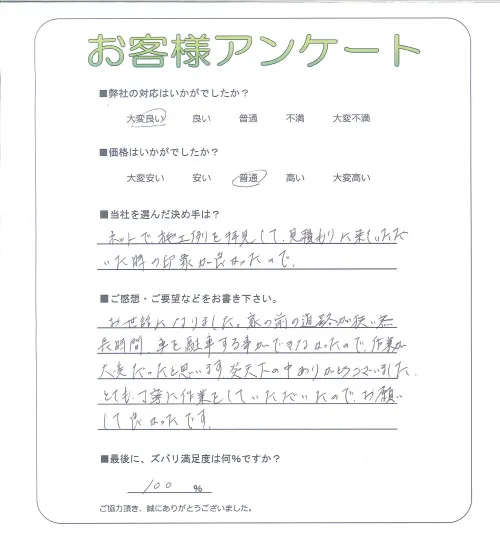 お客様アンケート
■弊社の対応はいかがでしたか？
大変良い 良い 普通 不満 大変不満
■価格はいかがでしたか？
大変安い 安い 普通 高い 大変高い
■当社を選んだ決め手は？
ネットで施工例を拝見して、見積もりに来ていただ
いた時の印象が良かったので、
■ご感想・ご要望などをお書き下さい。
お世話になりました。家の前の道路が狭い為
長時間、車を駐車する事ができなかったので、作業が
大変だったと思います 炎天下の中ありがとうございました。
とても丁寧に作業をしていただいたので、お願い
して良かったです。
■最後に、ズバリ満足度は何%ですか？
100 %
ご協力頂き、誠にありがとうございました。